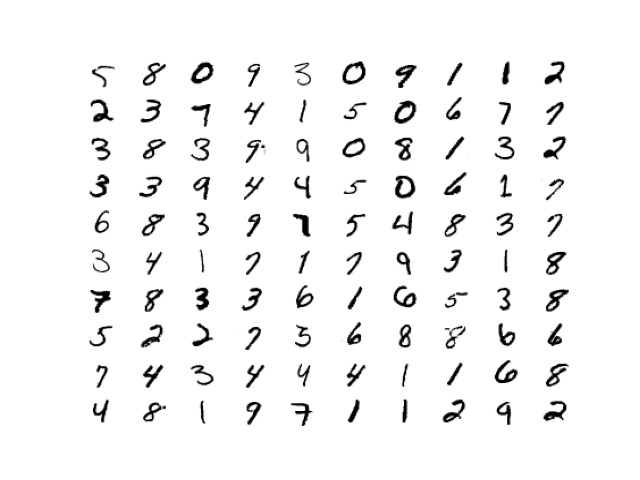 5 8 0 9 3 0 9 1 1 2
2 3 7 4 1 5 0 6 7 7
3 8 3 9 9 0 8 1 3 2
3 3 9 4 4 5 0 6 1 7
6 8 3 9 7 5 4 8 3 7
3 4 1 7 1 7 9 3 1 8
7 8 3 3 6 1 6 5 3 8
5 2 2 7 3 6 8 8 6 6
7 4 3 4 4 4 1 1 6 8
4 8 1 9 7 1 1 2 9 2